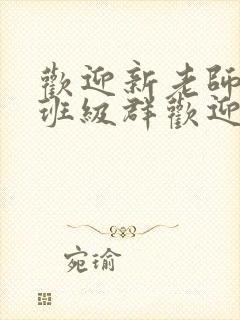 歡迎新老師
班級群歡迎
宛瑜